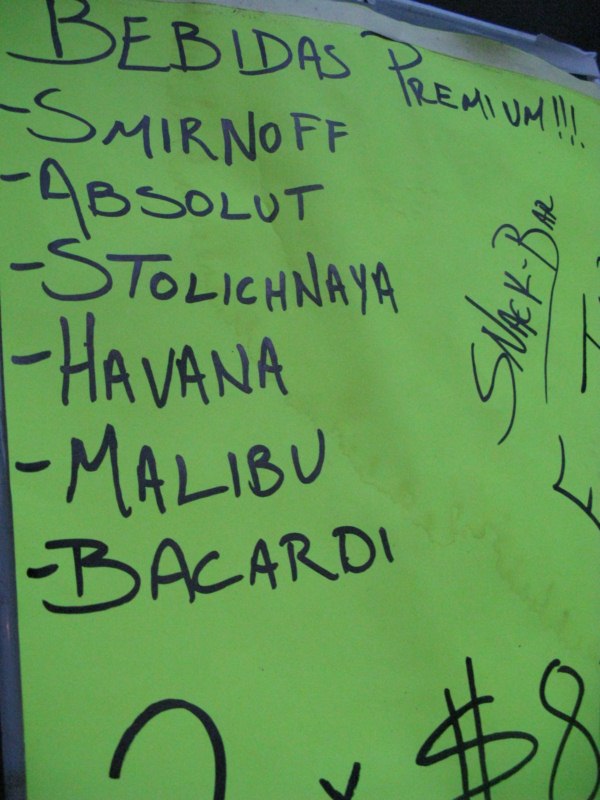 BEBIDAS PREMIUM!!!
-SMIRNOFF
-ABSOLUT
-STOLICHNAYA
-HAVANA
-MALIBU
-BACARDI
SNACK-BAR
2 x $8